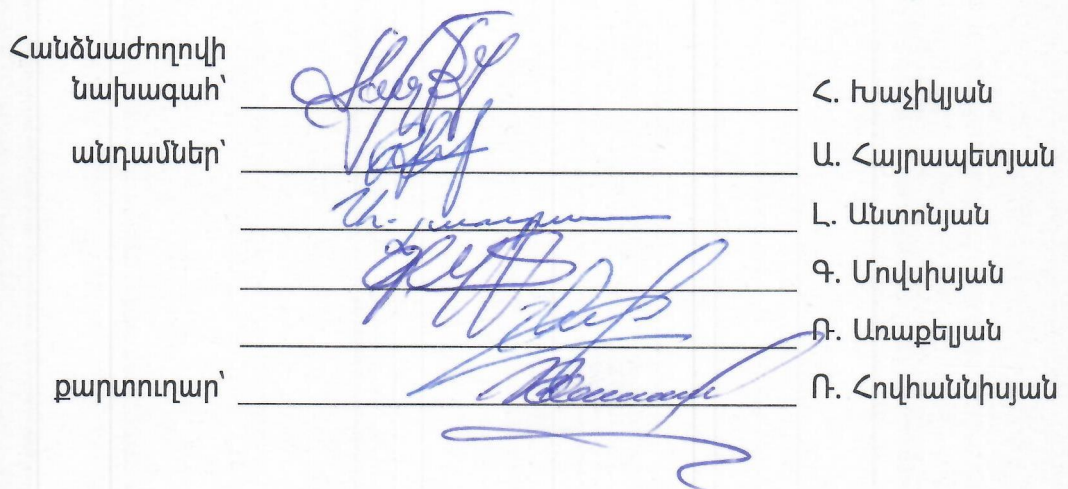 Հանձնաժողովի
նախագահ՝ Հ. Խաչիկյան
անդամներ՝ Ա. Հայրապետյան
Լ. Անտոնյան
Գ. Մովսիսյան
Ռ. Առաքելյան
քարտուղար՝ Ռ. Հովհաննիսյան